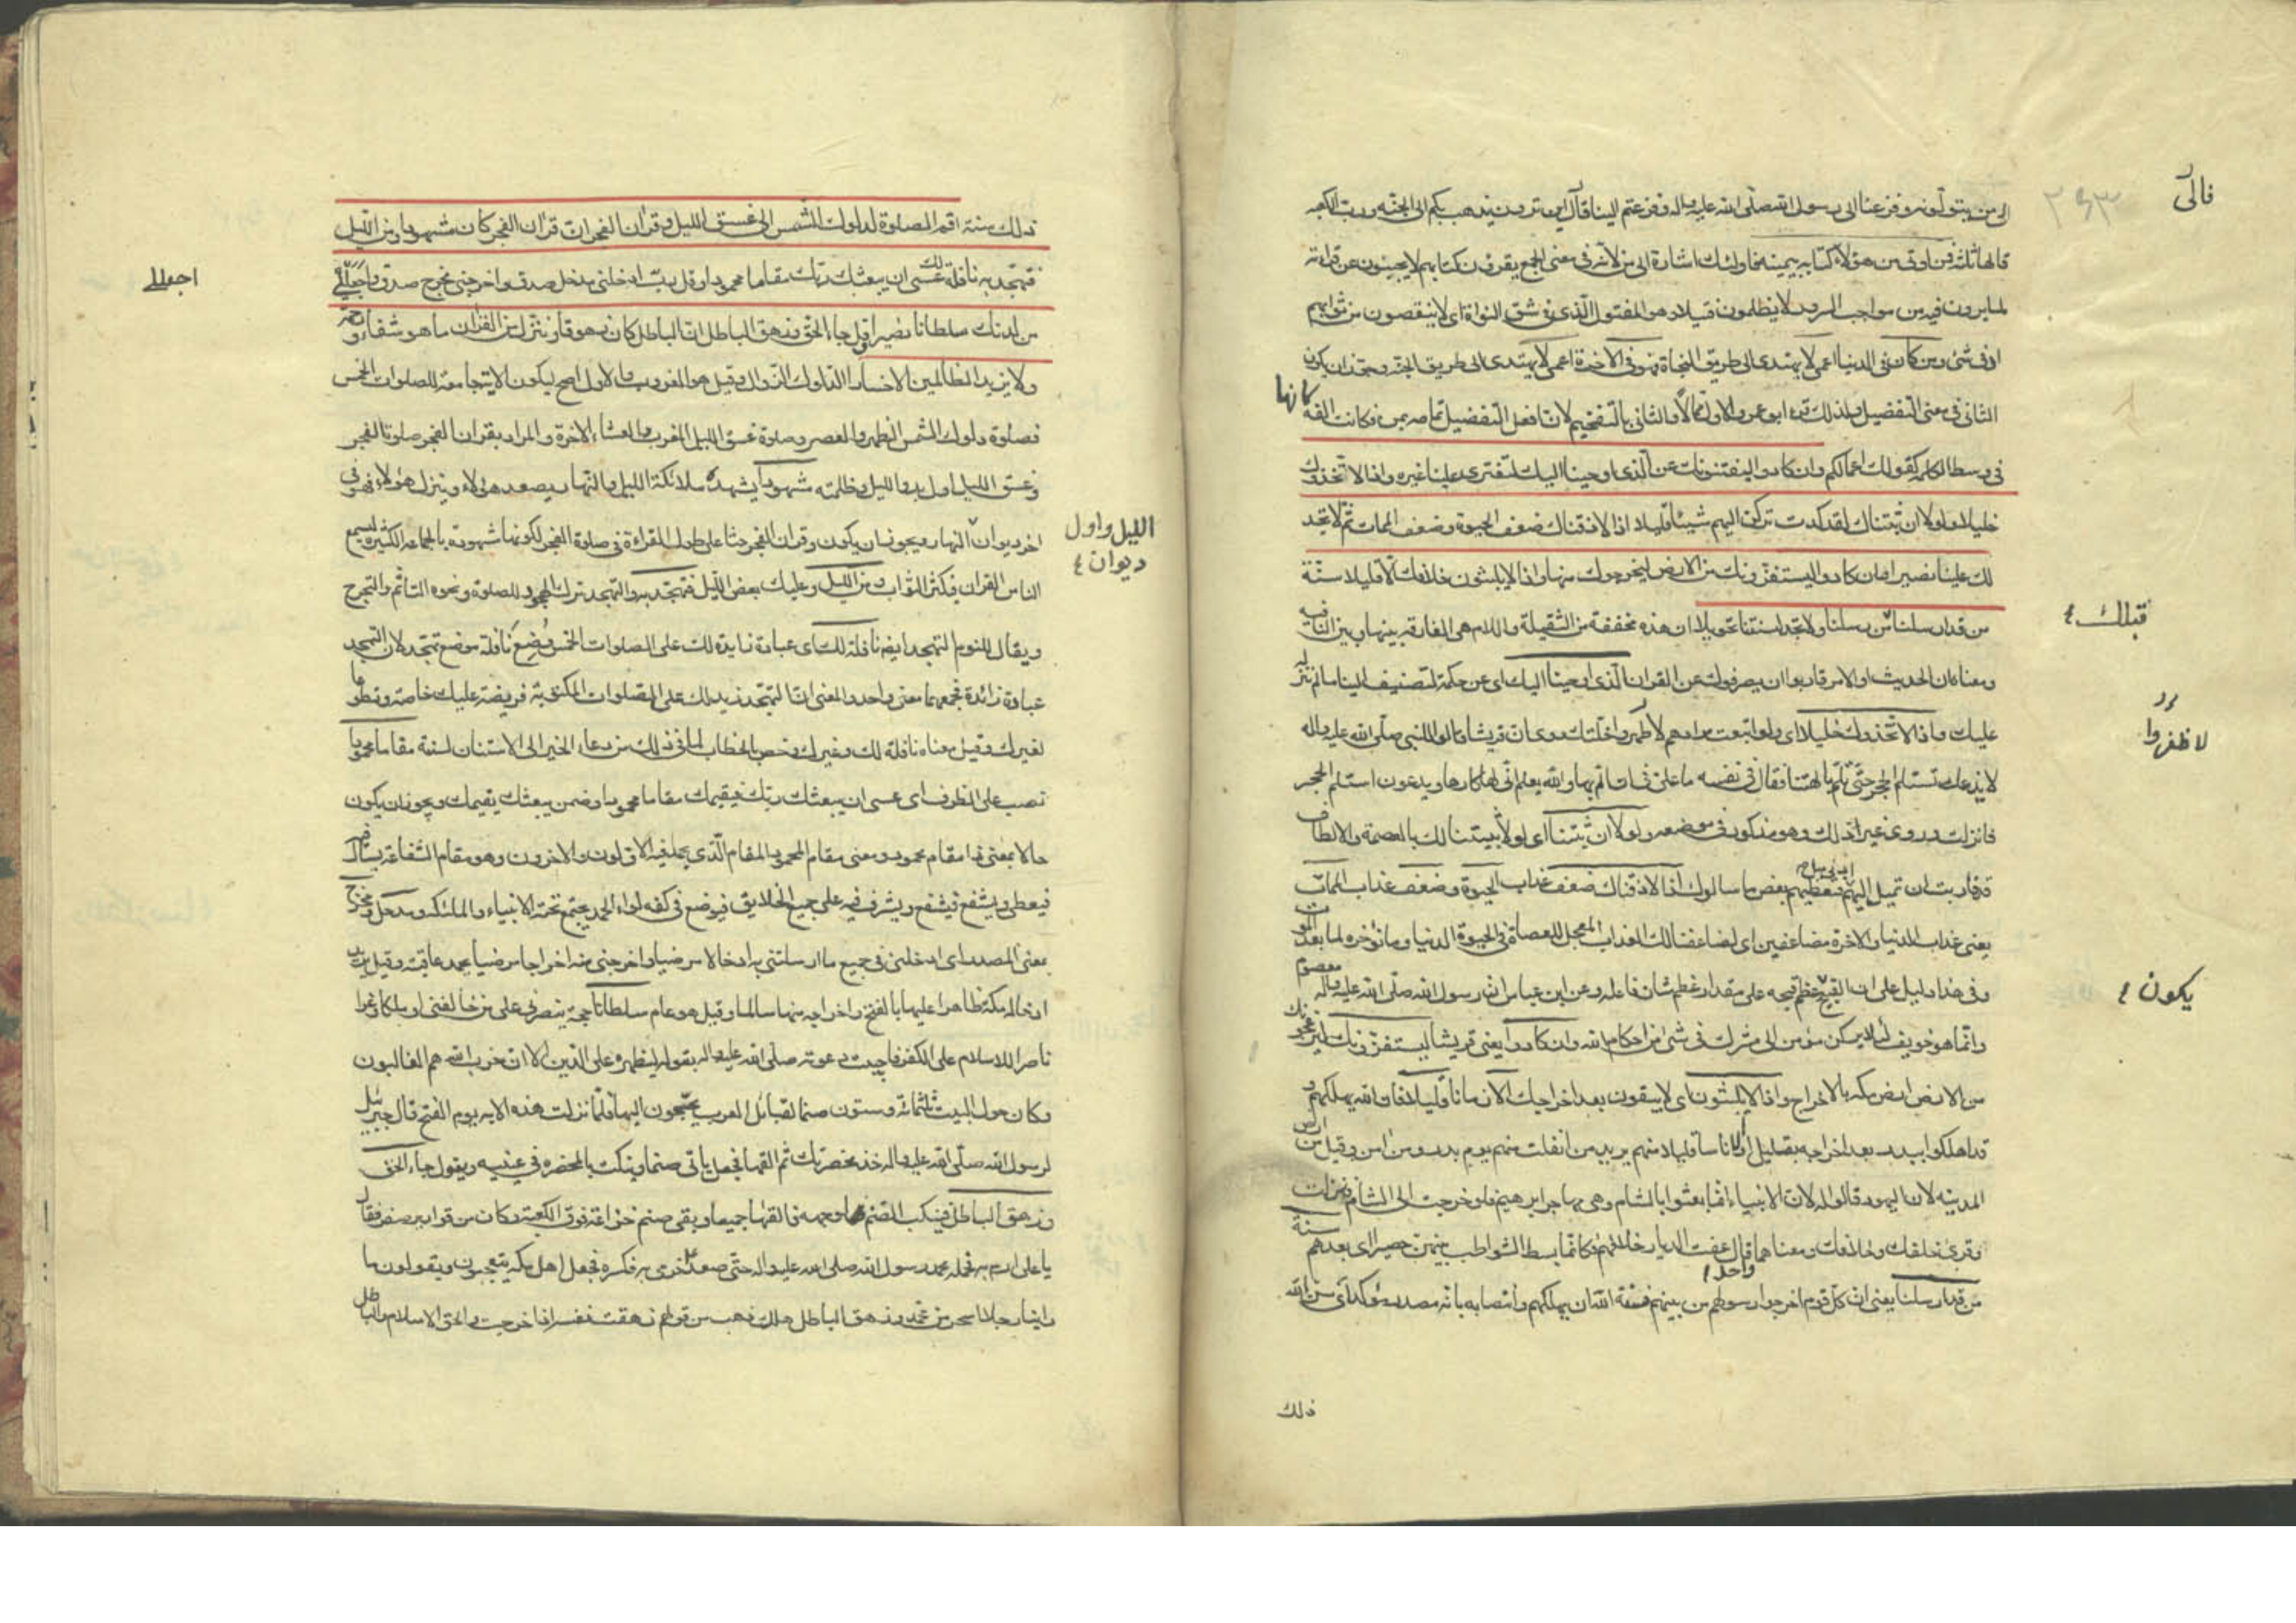 فالى
٢٩٣
الى من يتولونه وفزعنا الى رسول الله صلى الله عليه واله وفزعتم الينا فالى اين ترون يذهب بكم الى الجنة ورب الكعبه
قالها ثلثا فمن اوتى من هؤلاء كتابه بيمينه فاولئك اشارة الى من لانه فى معنى الجمع يقرؤن كتابهم لا يجبنون عن قرائته
لما يرون فيه من مواجب السرور لا يظلمون فتيلا وهو المفتول الذى فى شق النواة اى لا ينقصون من ثوابهم
ادنى شئ ومن كان فى الدنيا اعمى لا يهتدى الى طريق النجاة فهو فى الاخرة اعمى لا يهتدى الى طريق الجنه وجوز ان يكون
الثانى فى معنى التفضيل ولذلك قرء ابو عمرو الاول ممالا والثانى بالتفخيم لان افعل التفضيل تمامه بمن فكانت الفه كانها
فى وسط الكلمه كقولك اعمالكم وان كادوا ليفتنونك عن الذى اوحينا اليك لتفترى علينا غيره واذا لاتخذوك
خليلا ولولا ان ثبتناك لقد كدت تركن اليهم شيئا قليلا اذا لاذقناك ضعف الحيوة وضعف الممات ثم لا تجد
لك علينا نصيرا وان كادوا ليستفزونك من الارض ليخرجوك منها واذا لا يلبثون خلافك الا قليلا سنة
من قد ارسلنا من رسلنا ولا تجد لسنتنا تحويلا ان هذه مخففة من الثقيلة واللام هى الفارقه بينها وبين النافيه
قبلك
ومعناه ان الحديث او الامر قاربوا ان يصرفوك عن القران الذى اوحينا اليك اى عن حكمه لتضيف الينا ما لم ننزله
عليك واذا لاتخذوك خليلا اى ولو اتبعت مرادهم لاظهروا خلتك روى ان قريشا قالوا للنبى صلى الله عليه واله
لاظفروا
لا ندعك تستلم الحجر حتى تلم بالهتنا فقال فى نفسه ما على فى ان الم بها والله يعلم انى لها كاره ويدعون استلم الحجر
فانزلت وروى غير ذلك وهو مذكور فى موضعه ولولا ان ثبتناك اى لولا تثبيتنا لك بالعصمة والالطاف
قد قاربت ان تميل اليهم فتعطيهم بعض ما سالوك اذا لاذقناك ضعف عذاب الحيوة وضعف عذاب الممات
يعنى عذاب الدنيا والاخرة مضاعفين اى لضاعفنا لك العذاب المعجل للعصاة فى الحيوة الدنيا وما نؤخره لما بعد الموت
وفى هذا دليل على ان القبيح يعظم قبحه على مقدار عظم شان فاعله وعن ابن عباس ان رسول الله صلى الله عليه واله معصوم
وانما هو تخويف لئلا يركن مؤمن الى مشرك فى شئ من احكام الله وان كادوا يعنى قريشا ليستفزونك ليزعجونك
يكون
من الارض ارض مكه بالاخراج واذا لا يلبثون اى لا يبقون بعد اخراجك الا زمانا قليلا فان الله يهلكهم و
قد اهلكوا ببدر بعد اخراجه بقليل او لا ناسا قليلا منهم يريد من انفلت منهم يوم بدر ومن امن وقيل من ارض
المدينه لان اليهود قالوا له لان الانبياء انما بعثوا بالشام وهى مهاجر ابرهيم فلو خرجت الى الشام فنزلت
وقرئ خلفك وخلافك ومعناهما واحد قال عفت الديار خلافهم فكانما بسط الشواطب بينهن حصيرا اى بعدهم سنة
من قد ارسلنا يعنى ان كل قوم اخرجوا رسولهم من بينهم فسنة الله ان يهلكهم وانتصابه بانه مصدر مؤكد اى سن الله
ذلك
ذلك سنة اقم الصلوة لدلوك الشمس الى غسق الليل وقران الفجر ان قران الفجر كان مشهودا ومن الليل
فتهجد به نافلة لك عسى ان يبعثك ربك مقاما محمودا وقل رب ادخلنى مدخل صدق واخرجنى مخرج صدق واجعل لى
اجعل لى
من لدنك سلطانا نصيرا وقل جاء الحق وزهق الباطل ان الباطل كان زهوقا وننزل من القران ما هو شفاء ورحمة
ولا يزيد الظالمين الا خسارا الدلوك الزوال وقيل هو الغروب والاول اصح ليكون الاية جامعة للصلوات الخمس
فصلوة دلوك الشمس الظهر والعصر وصلوة غسق الليل المغرب والعشاء الاخرة والمراد بقران الفجر صلوة الفجر
وغسق الليل اول بدو الليل وظلمته مشهودا يشهده ملائكة الليل والنهار يصعد هؤلاء وينزل هؤلاء فهو فى
اخر ديوان النهار ويجوز ان يكون وقران الفجر حثا على طول القراءة فى صلوة الفجر لكونها مشهودة بالجماعه الكثيره ليسمع
الليل واول
ديوان
الناس القران فيكثر الثواب ومن الليل وعليك بعض الليل فتهجد به والتهجد ترك الهجود للصلوة ونحوه التاثم والتحرج
ويقال للنوم التهجد ايضا نافلة لك اى عبادة زايدة لك على الصلوات الخمس وضع نافلة موضع تهجد لان التهجد
عبادة زائدة فجمعهما معنى واحد والمعنى ان التهجد زيد لك على الصلوات المكتوبة فريضة عليك خاصة وتطوعا
لغيرك وقيل معناه نافلة لك ولغيرك وخص بالخطاب لما فى ذلك من دعاء الخير الى الاستنان لسنة مقاما محمودا
نصب على الظرف اى عسى ان يبعثك ربك فيقيمك مقاما محمودا وضمن يبعثك يقيمك ويجوز ان يكون
حالا بمعنى ذا مقام محمود ومعنى مقام المحمود المقام الذى يحمده فيه الاولون والاخرون وهو مقام الشفاعة يسال فيه
فيعطى ويشفع فيشفع ويشرف فيه على جميع الخلايق فيوضع فى كفه لواء الحمد يجتمع تحته الانبياء والملئكه ومدخل ومخرج
بمعنى المصدر اى ادخلنى فى جميع ما ارسلتنى به ادخالا مرضيا واخرجنى منه اخراجا مرضيا يحمد عاقبته وقيل يريد
ادخاله مكة ظاهرا عليها بالفتح واخراجه منها سالما وقيل هو عام سلطانا حجة ينصرنى على من خالفنى او ملكا وعزا
ناصرا للاسلام على الكفر فاجيبت دعوته صلى الله عليه واله بقوله ليظهره على الدين الا ان حزب الله هم الغالبون
وكان حول البيت ثلثمائة وستون صنما لقبائل العرب يحجون اليها فلما نزلت هذه الايه يوم الفتح قال جبرئيل
لرسول الله صلى الله عليه واله خذ مخصرتك ثم القها فجعل ياتى صنما وينكت بالمخصره فى عينيه ويقول جاء الحق
وزهق الباطل فينكب الصنم لوجهه فالقيها جميعا وبقى صنم خزاعة فوق الكعبة وكان من قوارير صفر فقال
يا على ارم به فحمله رسول الله صلى الله عليه واله حتى صعد فرمى به فكسره فجعل اهل مكه يتعجبون ويقولون ما
راينا رجلا اسحر من محمد وزهق الباطل هلك وذهب من قولهم زهقت نفسه اذا خرجت والحق الاسلام والباطل